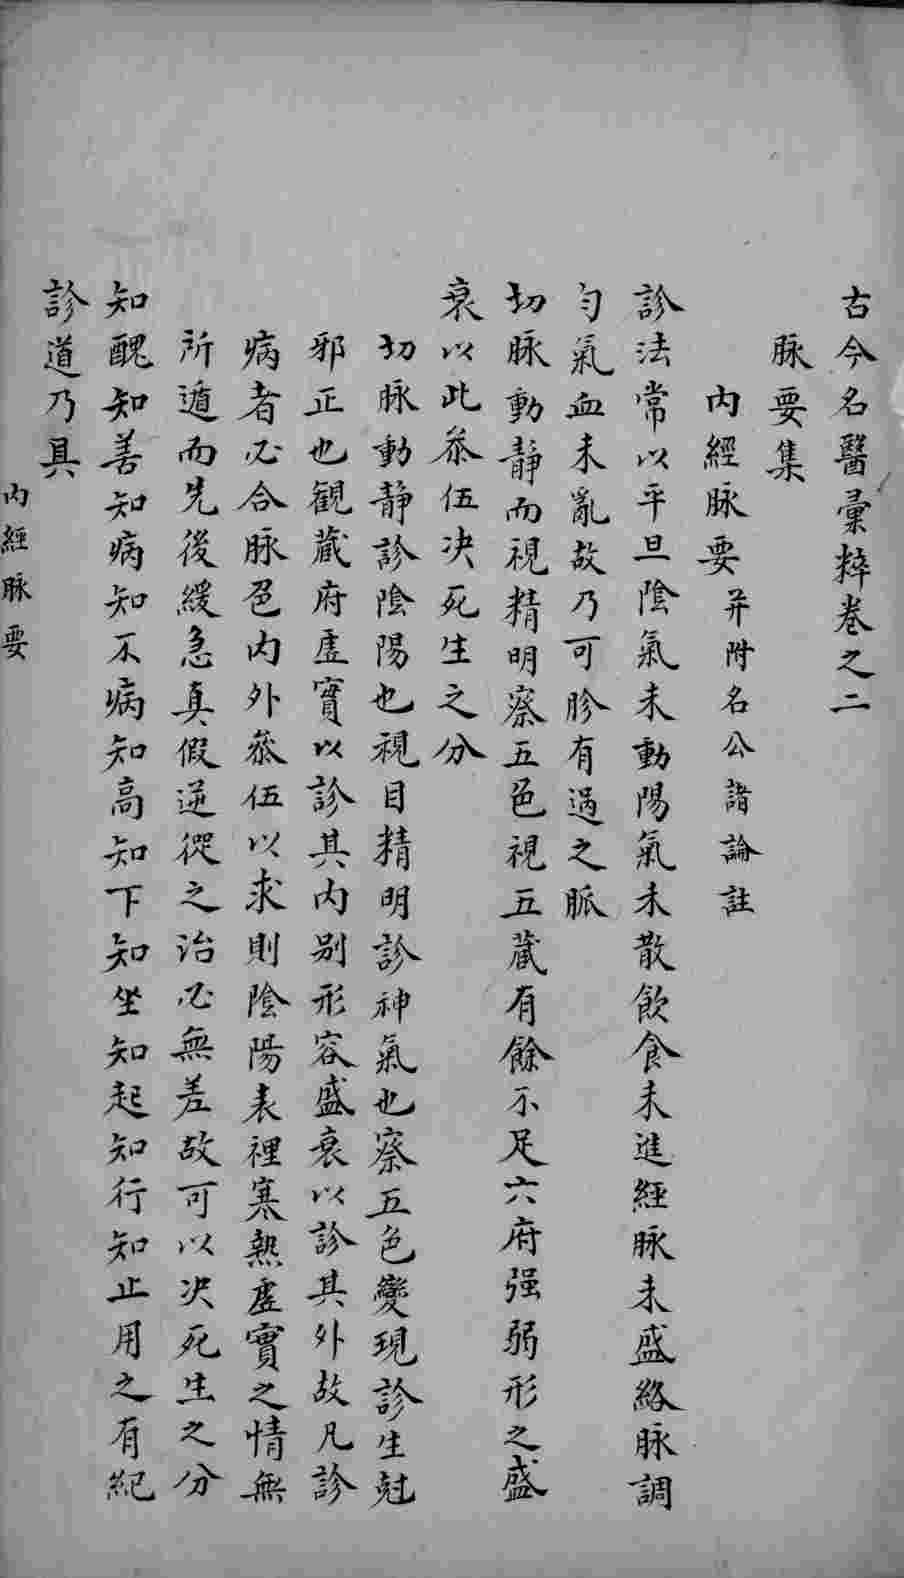 古今名醫彙粹卷之二
脉要集
內經脉要并附名公諸論註
診法常以平旦陰氣未動陽氣未散飲食未進經脉未盛絡脉調
勻氣血未亂故乃可胗有過之脈
切脉動靜而視精明察五色視五藏有餘不足六府强弱形之盛
衰以此叅伍决死生之分
切脉動靜診陰陽也視目精明診神氣也察五色變現診生尅
邪正也觀藏府虛實以診其內别形容盛衰以診其外故凡診
病者必合脉色内外叅伍以求則陰陽表裡寒熱虛實之情無
所遁而先後緩急真假逆從之治必無差故可以决死生之分
知醜知善知病知不病知高知下知坐知起知行知止用之有紀
診道乃具
内經脉要